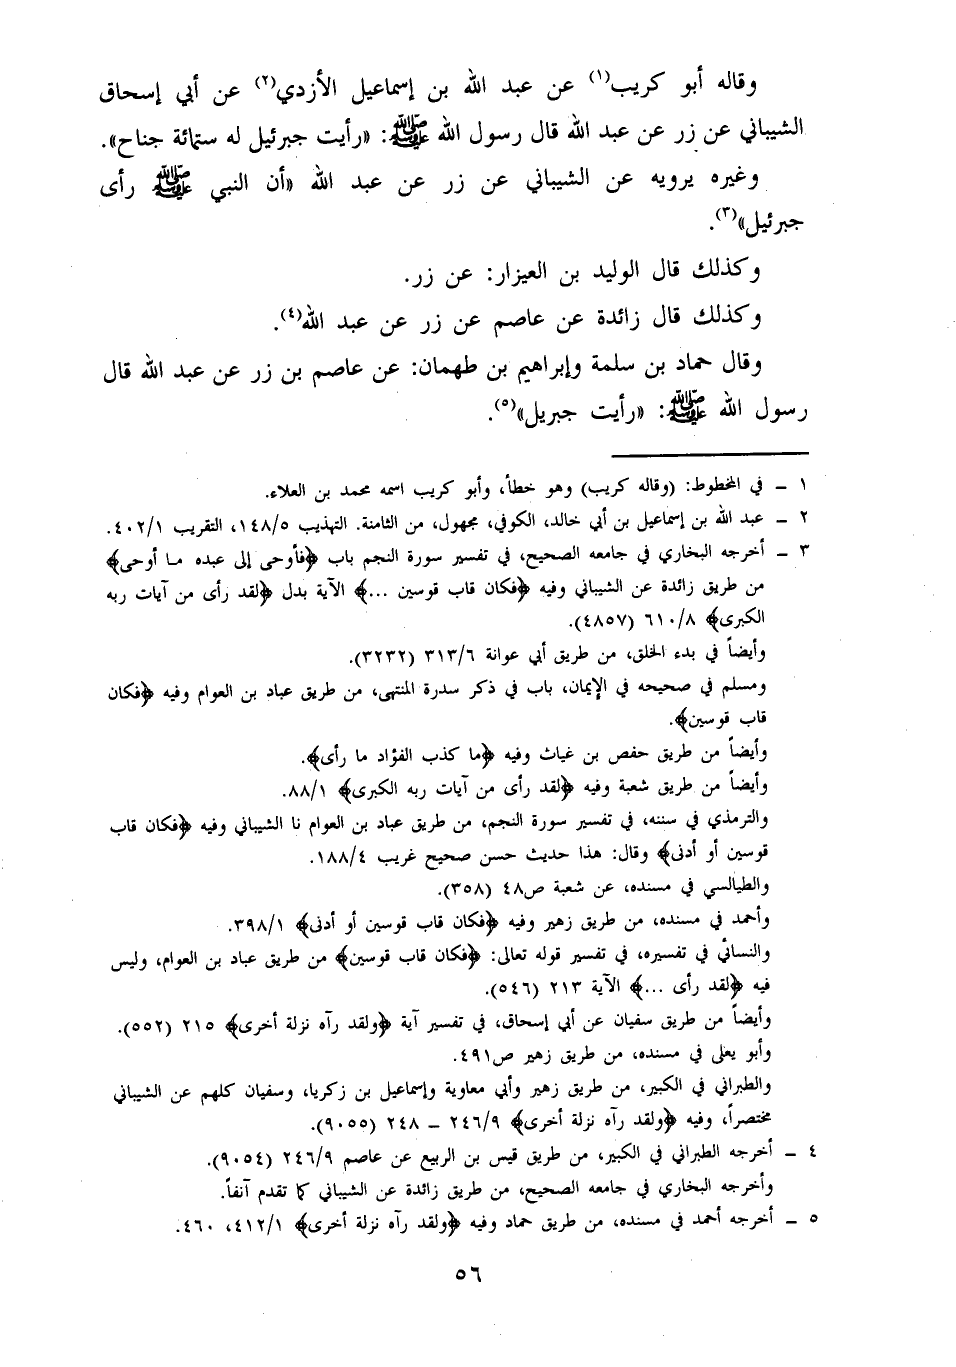 وقاله أبو كريب(١) عن عبد الله بن إسماعيل الأزدي(٢) عن أبي إسحاق
الشيباني عن زر عن عبد الله قال رسول الله ﷺ: «رأيت جبرئيل له ستمائة جناح».
وغيره يرويه عن الشيباني عن زر عن عبد الله «أن النبي ﷺ رأى
جبرئيل»(٣).
وكذلك قال الوليد بن العيزار: عن زر.
وكذلك قال زائدة عن عاصم عن زر عن عبد الله(٤).
وقال حماد بن سلمة وإبراهيم بن طهمان: عن عاصم بن زر عن عبد الله قال
رسول الله ﷺ: «رأيت جبريل»(٥).
١ ــ في المخطوط: (وقاله كريب) وهو خطأ، وأبو كريب اسمه محمد بن العلاء.
٢ ــ عبد الله بن إسماعيل بن أبي خالد، الكوفي، مجهول، من الثامنة. التهذيب ١٤٨/٥، التقريب ٤٠٢/١.
٣ ــ أخرجه البخاري في جامعه الصحيح، في تفسير سورة النجم باب ﴿فأوحى إلى عبده ما أوحى﴾
من طريق زائدة عن الشيباني وفيه ﴿فكان قاب قوسين ...﴾ الآية بدل ﴿لقد رأى من آيات ربه
الكبرى﴾ ٦١٠/٨ (٤٨٥٧).
وأيضاً في بدء الخلق، من طريق أبي عوانة ٣١٣/٦ (٣٢٣٢).
ومسلم في صحيحه في الإيمان، باب في ذكر سدرة المنتهى، من طريق عباد بن العوام وفيه ﴿فكان
قاب قوسين﴾.
وأيضاً من طريق حفص بن غياث وفيه ﴿ما كذب الفؤاد ما رأى﴾.
وأيضاً من طريق شعبة وفيه ﴿لقد رأى من آيات ربه الكبرى﴾ ٨٨/١.
والترمذي في سننه، في تفسير سورة النجم، من طريق عباد بن العوام نا الشيباني وفيه ﴿فكان قاب
قوسين أو أدنى﴾ وقال: هذا حديث حسن صحيح غريب ١٨٨/٤.
والطيالسي في مسنده، عن شعبة ص٤٨ (٣٥٨).
وأحمد في مسنده، من طريق زهير وفيه ﴿فكان قاب قوسين أو أدنى﴾ ٣٩٨/١.
والنسائي في تفسيره، في تفسير قوله تعالى: ﴿فكان قاب قوسين﴾ من طريق عباد بن العوام، وليس
فيه ﴿لقد رأى ...﴾ الآية ٢١٣ (٥٤٦).
وأيضاً من طريق سفيان عن أبي إسحاق، في تفسير آية ﴿ولقد رآه نزلة أخرى﴾ ٢١٥ (٥٥٢).
وأبو يعلى في مسنده، من طريق زهير ص٤٩١.
والطبراني في الكبير، من طريق زهير وأبي معاوية وإسماعيل بن زكريا، وسفيان كلهم عن الشيباني
مختصراً، وفيه ﴿ولقد رآه نزلة أخرى﴾ ٢٤٦/٩ ــ ٢٤٨ (٩٠٥٥).
٤ ــ أخرجه الطبراني في الكبير، من طريق قيس بن الربيع عن عاصم ٢٤٦/٩ (٩٠٥٤).
وأخرجه البخاري في جامعه الصحيح، من طريق زائدة عن الشيباني كما تقدم آنفاً.
٥ ــ أخرجه أحمد في مسنده، من طريق حماد وفيه ﴿ولقد رآه نزلة أخرى﴾ ٤١٢/١، ٤٦٠.
٥٦